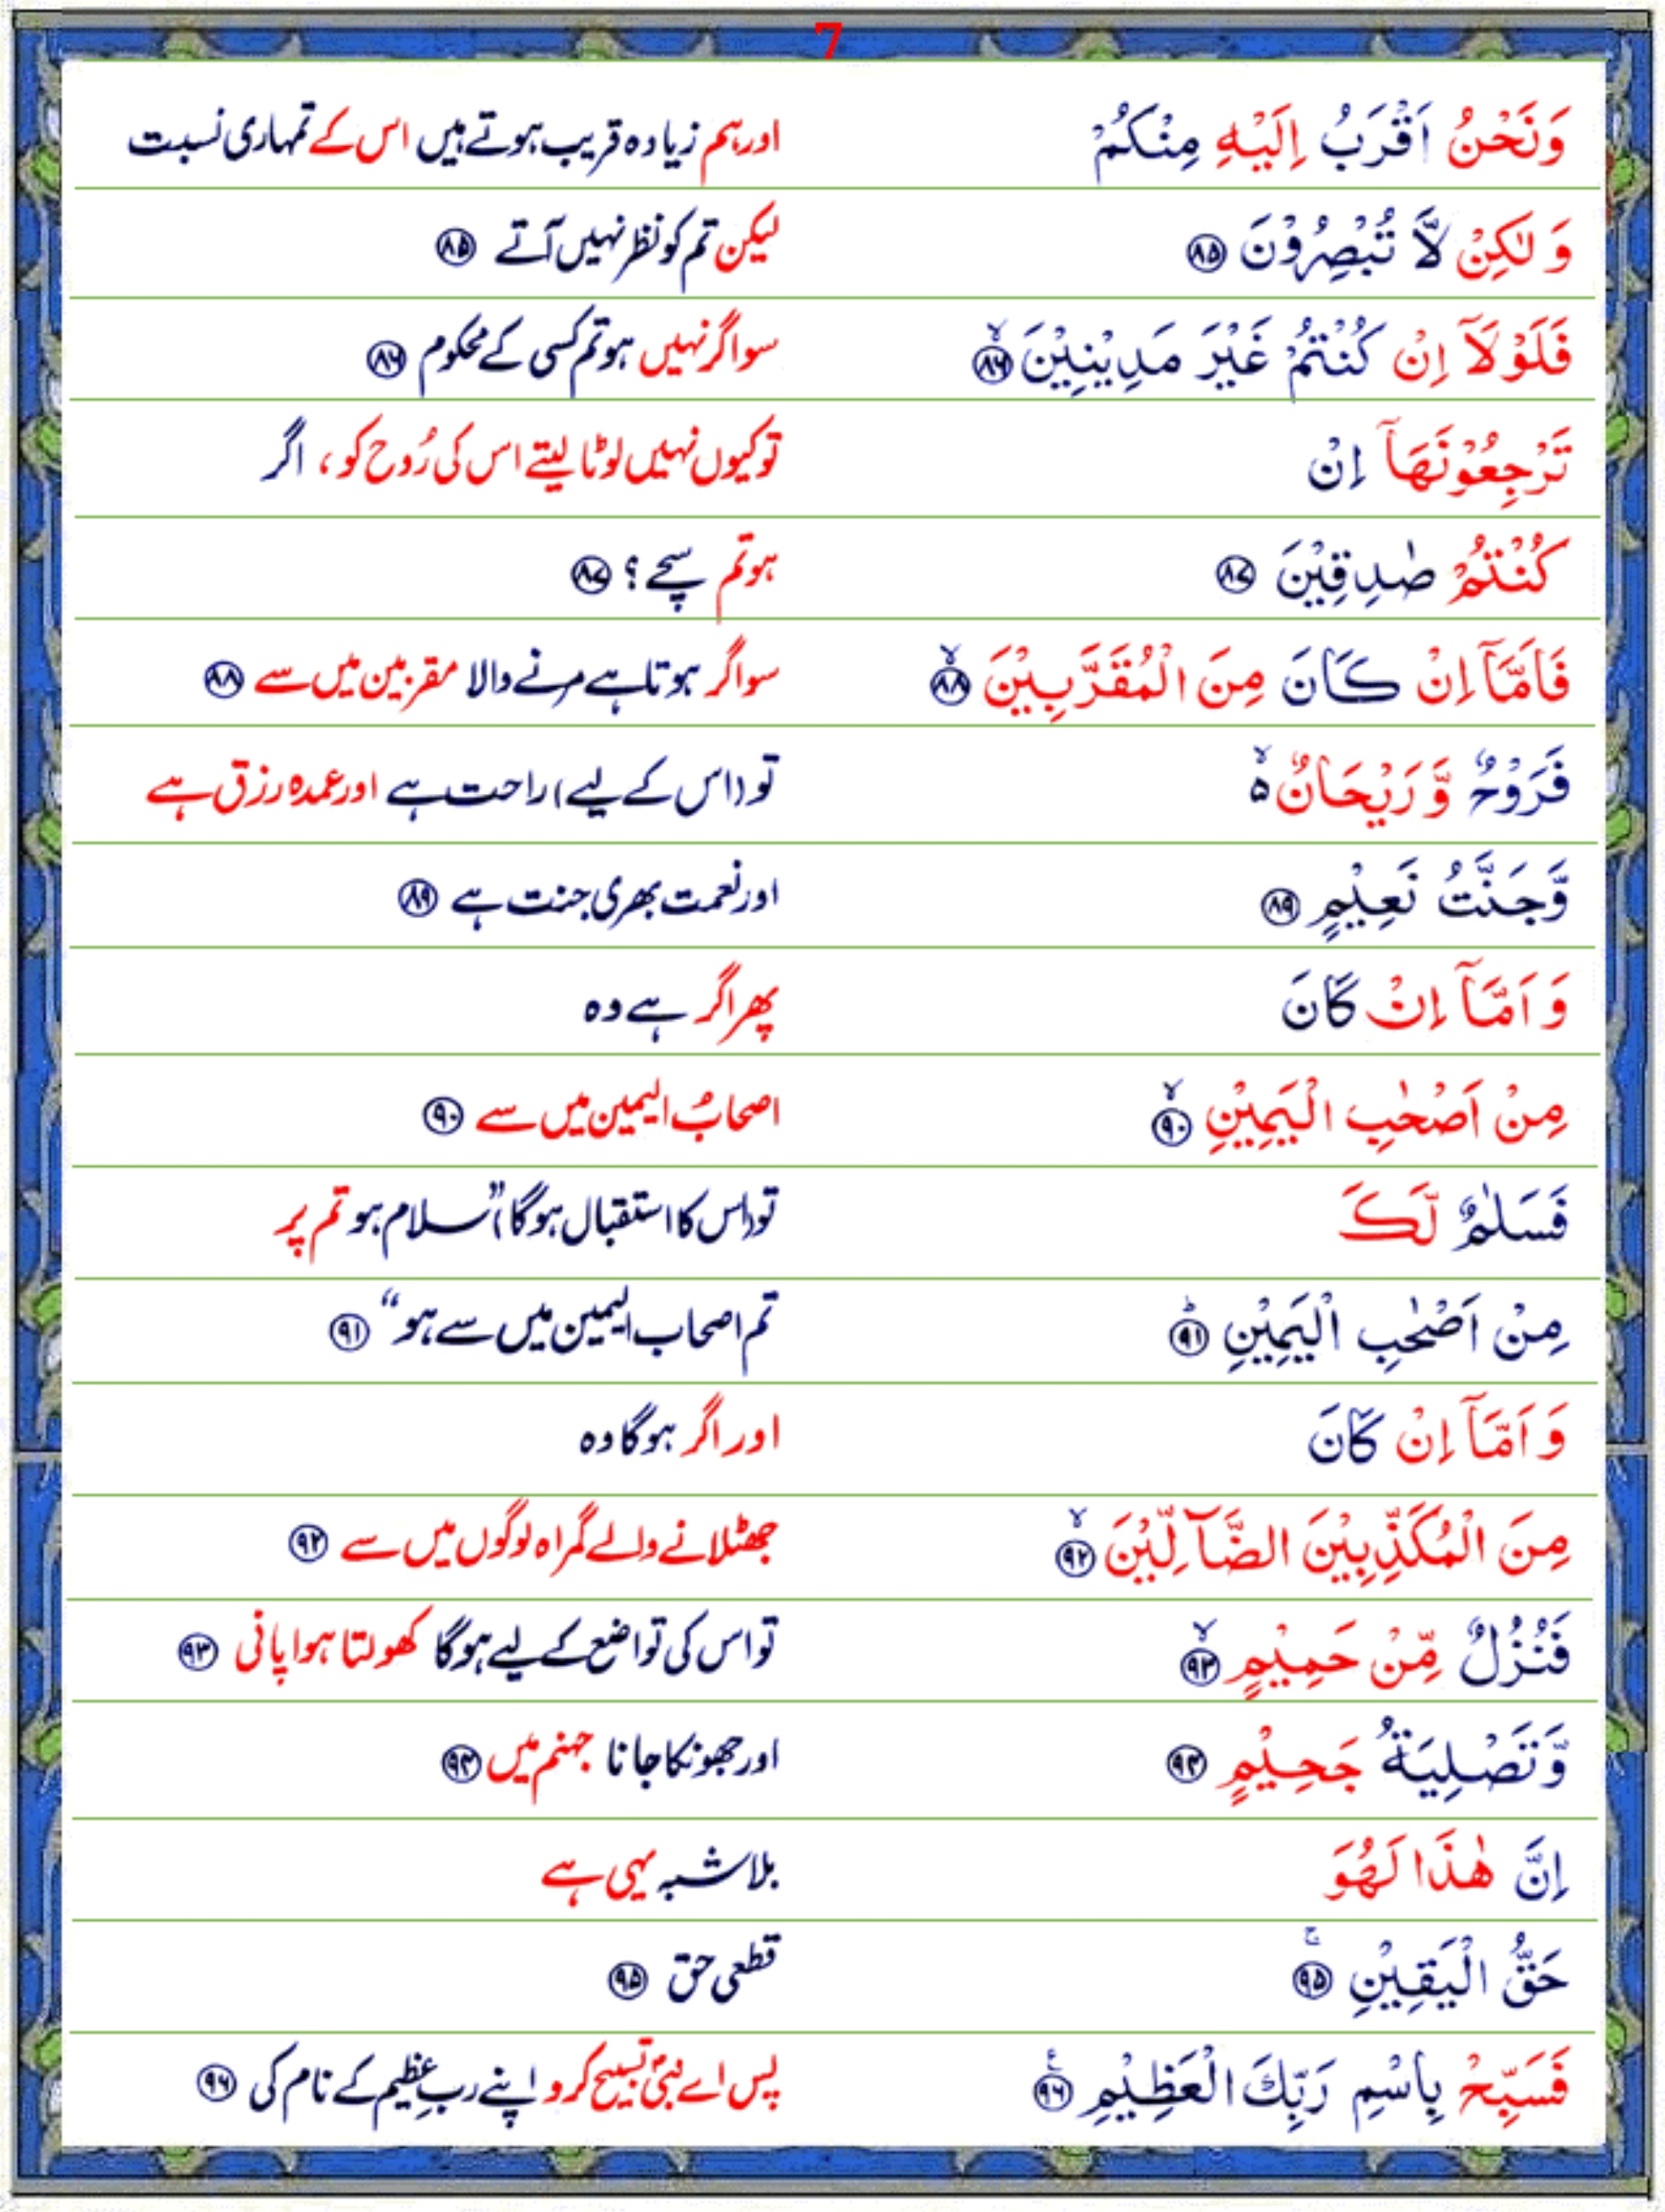 7
وَنَحْنُ اَقْرَبُ اِلَيْهِ مِنْكُمْ اور ہم زیادہ قریب ہوتے ہیں اس کے تمہاری نسبت
وَ لٰكِنْ لَّا تُبْصِرُوْنَ ۸۵ لیکن تم کو نظر نہیں آتے ۸۵
فَلَوْلَاۤ اِنْ كُنْتُمْ غَيْرَ مَدِيْنِيْنَ ۙ ۸۶ سو اگر نہیں ہو تم کسی کے محکوم ۸۶
تَرْجِعُوْنَهَاۤ اِنْ تو کیوں نہیں لوٹا لیتے اس کی رُوح کو ، اگر
كُنْتُمْ صٰدِقِيْنَ ۸۷ ہو تم سچے ؟ ۸۷
فَاَمَّاۤ اِنْ كَانَ مِنَ الْمُقَرَّبِيْنَ ۙ ۸۸ سو اگر ہوتا ہے مرنے والا مقربین میں سے ۸۸
فَرَوْحٌ وَّ رَيْحَانٌ ۙ۵ تو (اس کے لیے) راحت ہے اور عمدہ رزق ہے
وَّجَنَّتُ نَعِيْمٍ ۸۹ اور نعمت بھری جنت ہے ۸۹
وَ اَمَّاۤ اِنْ كَانَ پھر اگر ہے وہ
مِنْ اَصْحٰبِ الْيَمِيْنِ ۙ ۹۰ اصحابُ الیمین میں سے ۹۰
فَسَلٰمٌ لَّكَ تو (اس کا استقبال ہوگا) ”سلام ہو تم پر
مِنْ اَصْحٰبِ الْيَمِيْنِ ؕ ۹۱ تم اصحاب الیمین میں سے ہو“ ۹۱
وَ اَمَّاۤ اِنْ كَانَ اور اگر ہوگا وہ
مِنَ الْمُكَذِّبِيْنَ الضَّآلِّيْنَ ۙ ۹۲ جھٹلانے والے گمراہ لوگوں میں سے ۹۲
فَنُزُلٌ مِّنْ حَمِيْمٍ ۙ ۹۳ تو اس کی تواضع کے لیے ہوگا کھولتا ہوا پانی ۹۳
وَّ تَصْلِيَةُ جَحِيْمٍ ۹۴ اور جھونکا جانا جہنم میں ۹۴
اِنَّ هٰذَا لَهُوَ بلاشبہ یہی ہے
حَقُّ الْيَقِيْنِ ۚ ۹۵ قطعی حق ۹۵
فَسَبِّحْ بِاسْمِ رَبِّكَ الْعَظِيْمِ ۹۶ پس اے نبیؐ تسبیح کرو اپنے ربِ عظیم کے نام کی ۹۶